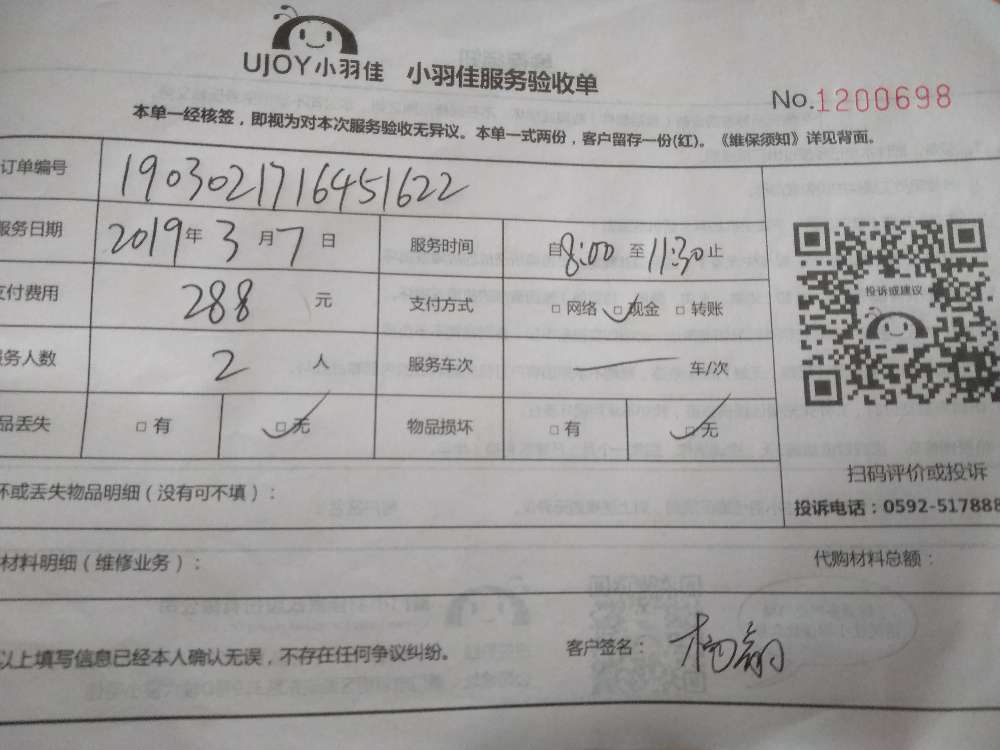 UJOY小羽佳 小羽佳服务验收单
No.1200698
本单一经核签，即视为对本次服务验收无异议。本单一式两份，客户留存一份(红)。《维保须知》详见背面。
订单编号 1903021716451622
服务日期 2019年3月7日 服务时间 自8:00至11:30止
支付费用 288元 支付方式 □网络 □现金 □转账
服务人数 2人 服务车次 车/次
品丢失 □有 □无 物品损坏 □有 □无
投诉或建议
扫码评价或投诉
投诉电话：0592-517888
坏或丢失物品明细（没有可不填）：
材料明细（维修业务）： 代购材料总额：
以上填写信息已经本人确认无误，不存在任何争议纠纷。 客户签名：